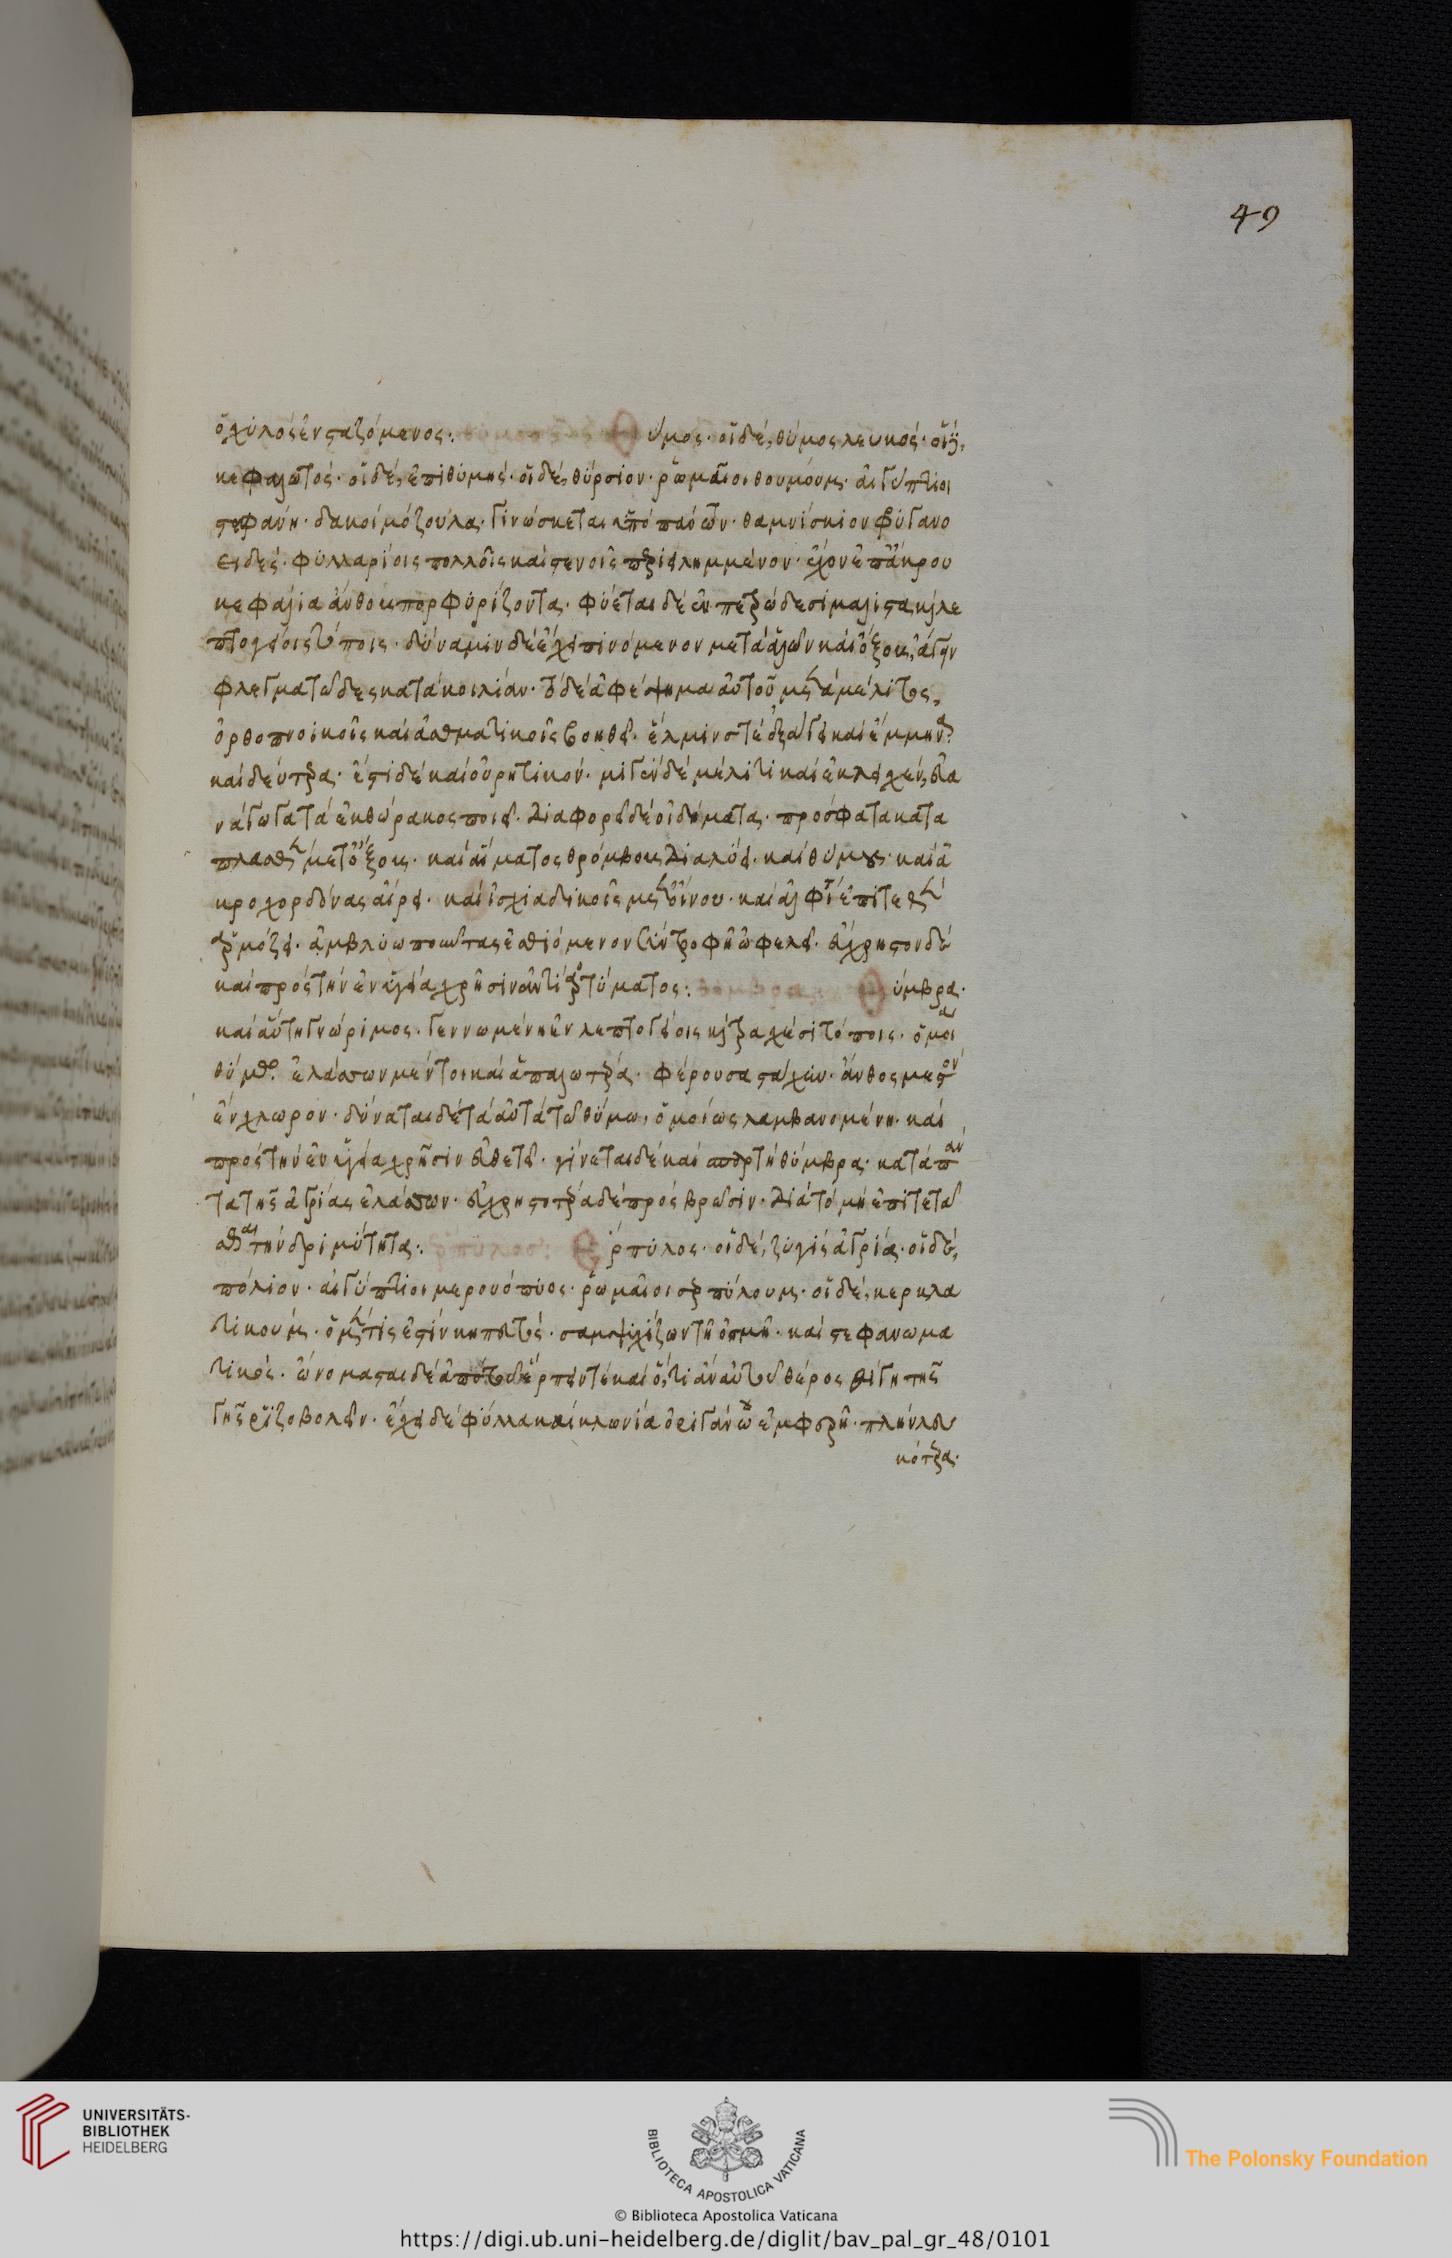 49
ὁ χυλὸς ἐνσταζόμενος: θύμος Θύμος· οἱ δὲ, θύμος λευκός· οἱ δὲ,
κεφαλωτός· οἱ δὲ, ἐπιθυμίς· οἱ δὲ, θύρσιον· ῥωμαῖοι θουμούμ· αἰγύπτιοι
στεφανή· δακοὶ μόζουλα· γινώσκεται ὑπὸ πάντων· θαμνίσκιον φρυγανο
ειδές· φυλλαρίοις πολλοῖς καὶ στενοῖς περιειλημμένον· ἔχον ἐπ' ἄκρου
κεφάλια ἄνθους πορφυρίζοντα· φύεται δὲ ἐν πετρώδεσι μάλιστα καὶ λε
πτογείοις τόποις· δύναμιν δὲ ἔχει πινόμενον μετὰ ἁλῶν καὶ ὄξους, ἄγειν
φλεγματώδες κατὰ κοιλίαν· τὸ δὲ ἀφέψημα αὐτοῦ μετὰ μέλιτος,
ὀρθοπνοικοῖς καὶ ἀσθματικοῖς βοηθεῖ· ἕλμινς τε ἐξάγει καὶ ἔμμηνα
καὶ δεύτερα· ἔστι δὲ καὶ οὐρητικόν· μιγὲν δὲ μέλιτι καὶ ἐκλειχθὲν, εὐα
νάγωγα τὰ ἐκ θώρακος ποιεῖ· διαφορεῖ δὲ οἰδήματα· πρόσφατα κατα
πλασθὲν μετ' ὄξους· καὶ αἵματος θρόμβους διαλύει· καὶ θύμους· καὶ ἀ
κροχορδόνας αἴρει· καὶ ἰσχιαδικοῖς μετὰ οἴνου· καὶ ἀλφίτου ἐπιτεθὲν
ἁρμόζει· ἀμβλυωποῦντας ἐσθιόμενον σὺν τροφῇ ὠφελεῖ· εὔχρηστον δὲ
καὶ πρὸς τὴν ἐν ὑγείᾳ χρῆσιν ἀντὶ ἀρτύματος: θύμβρα Θύμβρα·
καὶ αὕτη γνώριμος· γεννωμένη ἐν λεπτογείοις καὶ τραχέσι τόποις· ὁμοία
θύμῳ. ἐλάσσων μέντοι καὶ ἁπαλωτέρα· φέρουσα στάχυν· ἄνθους μεστὸν
ἔνχλωρον· δύναται δὲ τὰ αὐτὰ τῷ θύμῳ, ὁμοίως λαμβανομένη· καὶ
πρὸς τὴν ἐν ὑγείᾳ χρῆσιν εὐθετεῖ· γίνεται δὲ καὶ σπαρτὴ θύμβρα· κατὰ πάν
τα τῆς ἀγρίας ἐλάσσων· εὐχρηστοτέρα δὲ πρὸς βρῶσιν· διὰ τὸ μὴ ἐπιτετά
σθαι τὴν δριμύτητα: ἕρπυλος: Ἕρπυλος· οἱ δὲ, ζυγὶς ἀγρία· οἱ δὲ,
πόλιον· αἰγύπτιοι μερουόπυος· ῥωμαῖοι σερπύλουμ· οἱ δὲ, κερκλα
τικούμ· ὁ μέν τις ἐστὶν κηπευτός· σαμψυχίζων τῇ ὀσμῇ· καὶ στεφανωμα
τικός· ὠνόμασται δὲ ἀπὸ τοῦ ἕρπειν τε καὶ ὅτι ἂν αὐτοῦ μέρος θίγῃ τῆς
γῆς ῥιζοβολεῖν· ἔχει δὲ φύλλα καὶ κλωνία ὀριγάνῳ ἐμφερῆ· πλὴν λευ
κότερα·
UNIVERSITÄTS-
BIBLIOTHEK
HEIDELBERG
BIBLIOTECA APOSTOLICA VATICANA
The Polonsky Foundation
© Biblioteca Apostolica Vaticana
https://digi.ub.uni-heidelberg.de/diglit/bav_pal_gr_48/0101